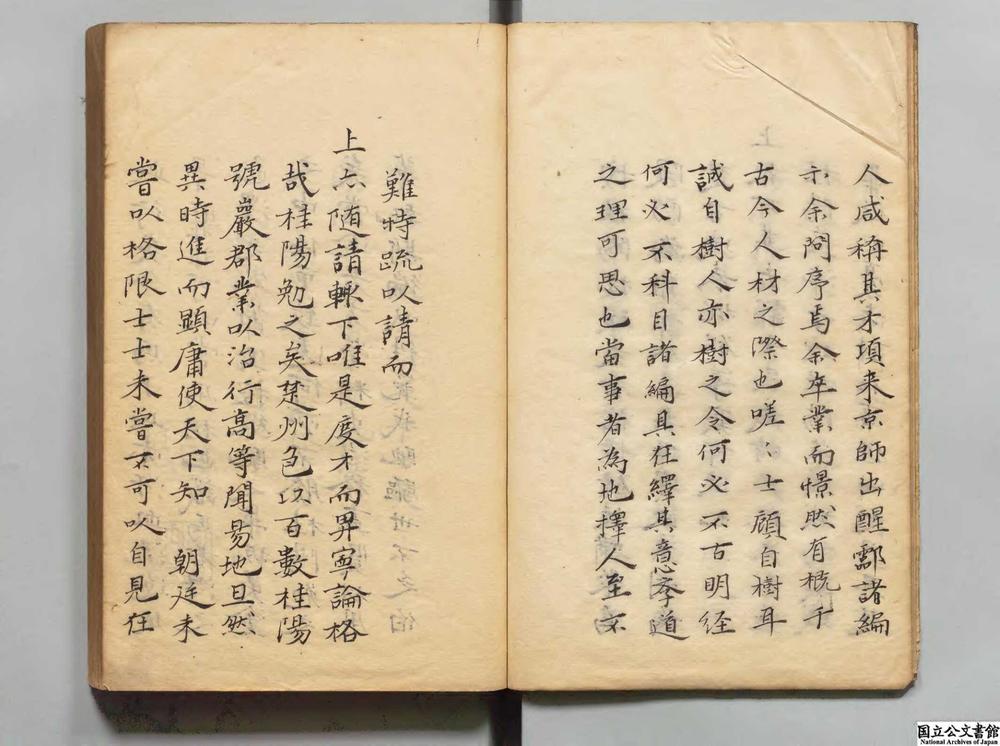 人咸稱其才項来京師出醒酃諸編
示余問序焉余卒業而憬然有槪于
古今人材之際也嗟〻士顧自樹耳
誠自樹人亦樹之令何必不古明經
何必不科目諸編具在繹其意孝道
之理可思也當事者為地擇人至不
難特疏以請而
上亦随請輙下唯是度才而畀寧論格
哉桂陽勉之矣楚州邑以百數桂陽
號巖郡業以治行高等聞昜地旦然
異時進而顯庸使天下知　朝廷未
嘗以格限士士未嘗不可以自見在
国立公文書館
National Archives of Japan